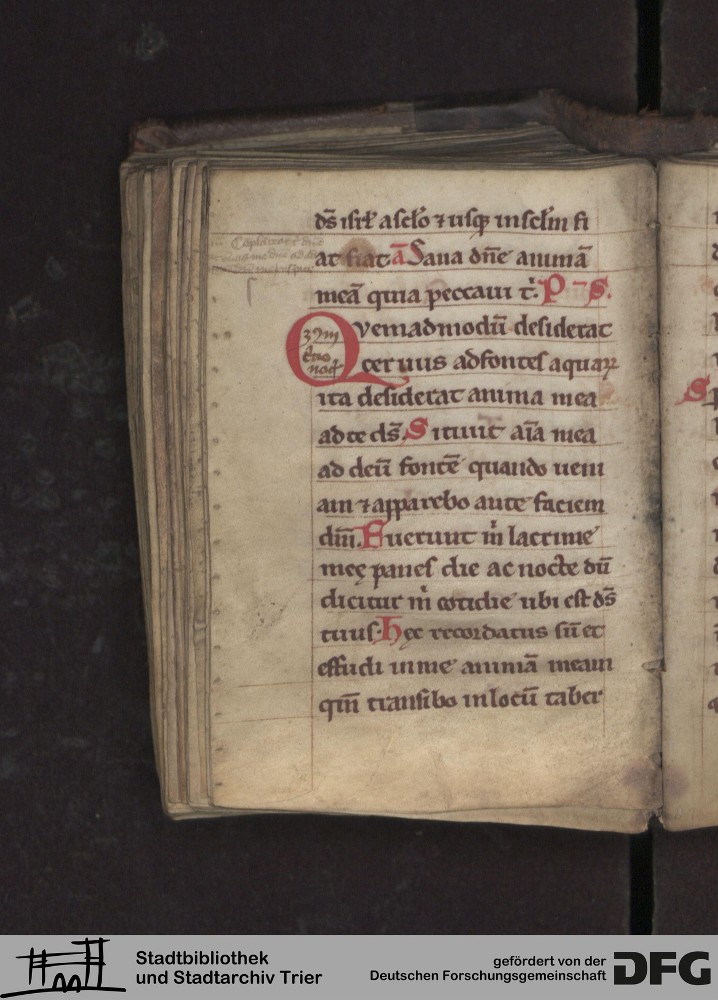 ds̄ isrł a sclo ⁊ usqꝫ insclm fi
at fiat ā Sana dn̄e animā
meā quia peccaui t. P S.
Quemadmodū desiderat
ceruus adfontes aquaꝝ
ita desiderat anima mea
ad te ds̄. Sitiuit aīa mea
ad deū fontē quando ueni
am ⁊ apparebo ante faciem
dīni. Fuerunt m̄ lacrime
meę panes die ac nocte dū
dicitur m̄ cotidie ubi est ds̄
tuus. Hęc recordatus sū et
effudi in me animā meam
qm̄ transibo in locū taber
Stadtbibliothek
und Stadtarchiv Trier
gefördert von der
Deutschen Forschungsgemeinschaft
DFG